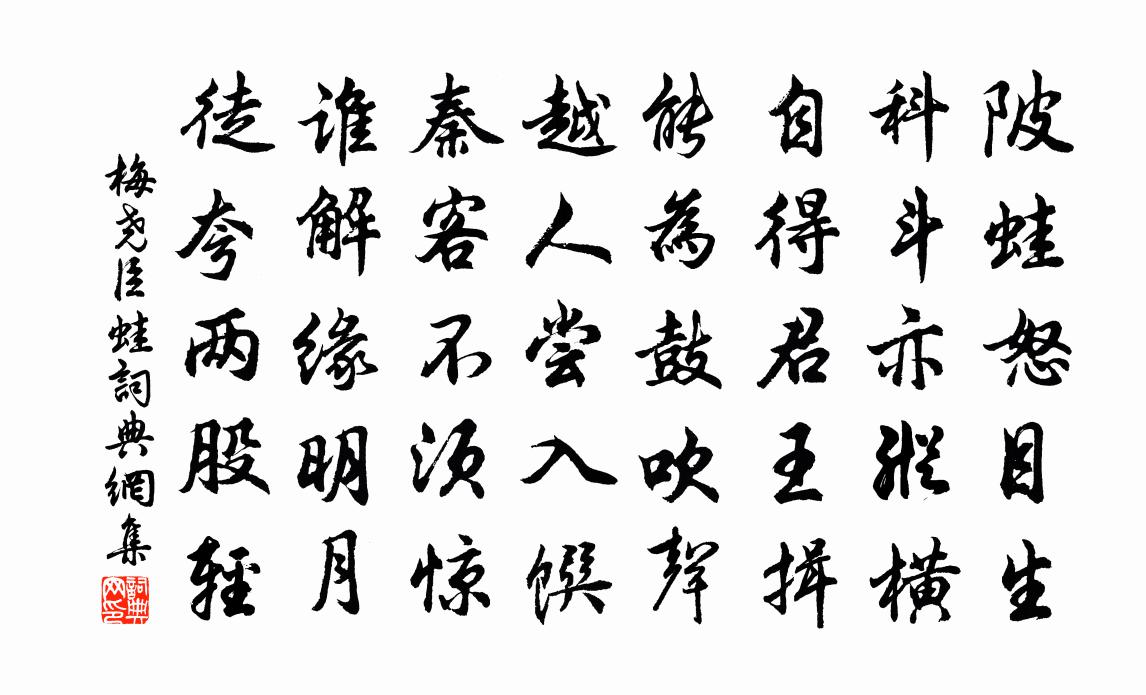 陂蛙怒目生
科斗亦縱橫
自得君王揖
能為鼓吹聲
越人尝入饌
秦客不须惊
谁解缘明月
徒夸两股輕
梅尧臣蛙詞典網集
詞典网印